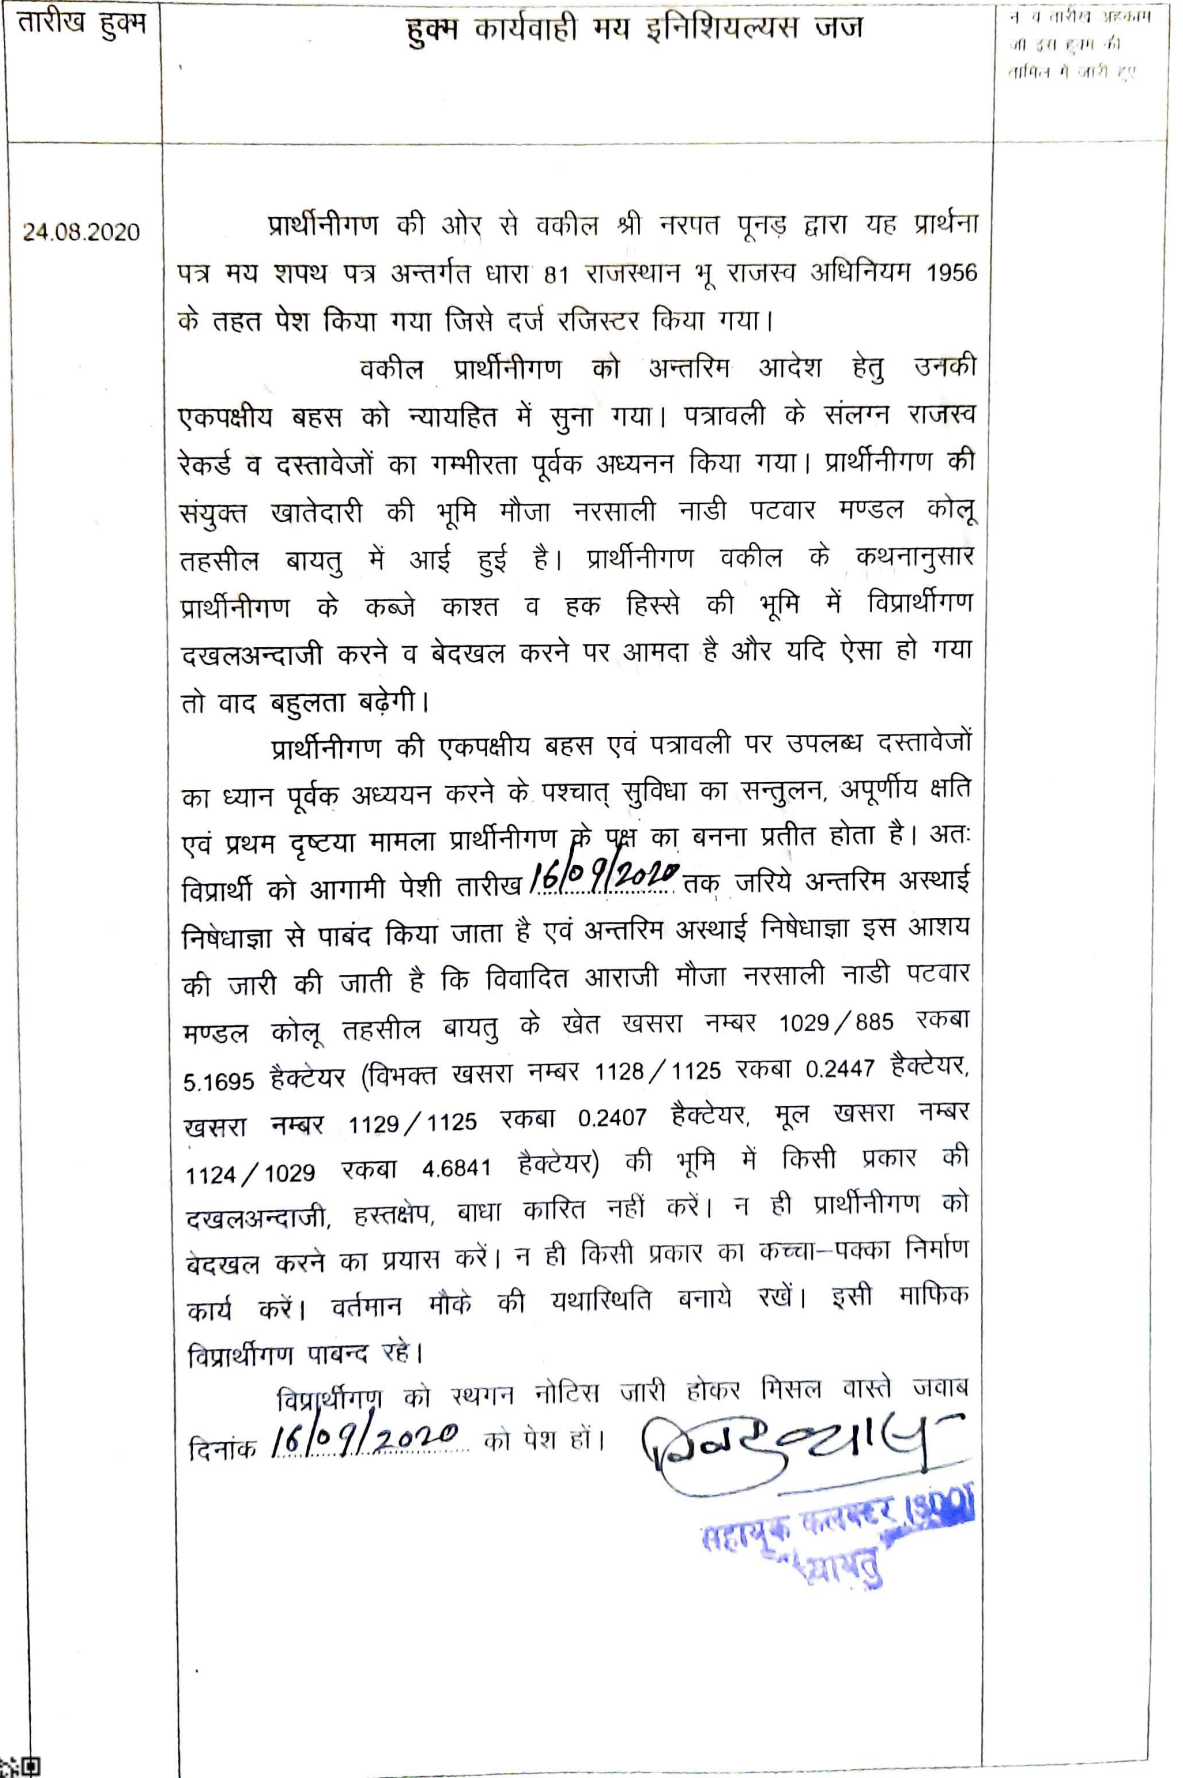 तारीख हुक्म
हुक्म कार्यवाही मय इनिशियल्यस जज
न व तारीख अहकाम
जो इस हुक्म की
तामिल में जारी हुए
24.08.2020
प्रार्थीनीगण की ओर से वकील श्री नरपत पूनड़ द्वारा यह प्रार्थना
पत्र मय शपथ पत्र अन्तर्गत धारा 81 राजस्थान भू राजस्व अधिनियम 1956
के तहत पेश किया गया जिसे दर्ज रजिस्टर किया गया।
वकील प्रार्थीनीगण को अन्तरिम आदेश हेतु उनकी
एकपक्षीय बहस को न्यायहित में सुना गया। पत्रावली के संलग्न राजस्व
रेकर्ड व दस्तावेजों का गम्भीरता पूर्वक अध्यनन किया गया। प्रार्थीनीगण की
संयुक्त खातेदारी की भूमि मौजा नरसाली नाडी पटवार मण्डल कोलू
तहसील बायतु में आई हुई है। प्रार्थीनीगण वकील के कथनानुसार
प्रार्थीनीगण के कब्जे काश्त व हक हिस्से की भूमि में विप्रार्थीगण
दखलअन्दाजी करने व बेदखल करने पर आमदा है और यदि ऐसा हो गया
तो वाद बहुलता बढ़ेगी।
प्रार्थीनीगण की एकपक्षीय बहस एवं पत्रावली पर उपलब्ध दस्तावेजों
का ध्यान पूर्वक अध्ययन करने के पश्चात् सुविधा का सन्तुलन, अपूर्णीय क्षति
एवं प्रथम दृष्टया मामला प्रार्थीनीगण के पक्ष का बनना प्रतीत होता है। अतः
विप्रार्थी को आगामी पेशी तारीख 16/09/2020 तक जरिये अन्तरिम अस्थाई
निषेधाज्ञा से पाबंद किया जाता है एवं अन्तरिम अस्थाई निषेधाज्ञा इस आशय
की जारी की जाती है कि विवादित आराजी मौजा नरसाली नाडी पटवार
मण्डल कोलू तहसील बायतु के खेत खसरा नम्बर 1029/885 रकबा
5.1695 हैक्टेयर (विभक्त खसरा नम्बर 1128/1125 रकबा 0.2447 हैक्टेयर,
खसरा नम्बर 1129/1125 रकबा 0.2407 हैक्टेयर, मूल खसरा नम्बर
1124/1029 रकबा 4.6841 हैक्टेयर) की भूमि में किसी प्रकार की
दखलअन्दाजी, हस्तक्षेप, बाधा कारित नहीं करें। न ही प्रार्थीनीगण को
बेदखल करने का प्रयास करें। न ही किसी प्रकार का कच्चा–पक्का निर्माण
कार्य करें। वर्तमान मौके की यथास्थिति बनाये रखें। इसी माफिक
विप्रार्थीगण पाबन्द रहे।
विप्रार्थीगण को स्थगन नोटिस जारी होकर मिसल वास्ते जवाब
दिनांक 16/09/2020 को पेश हों।
सहायक कलक्टर (SDO)
बायतु